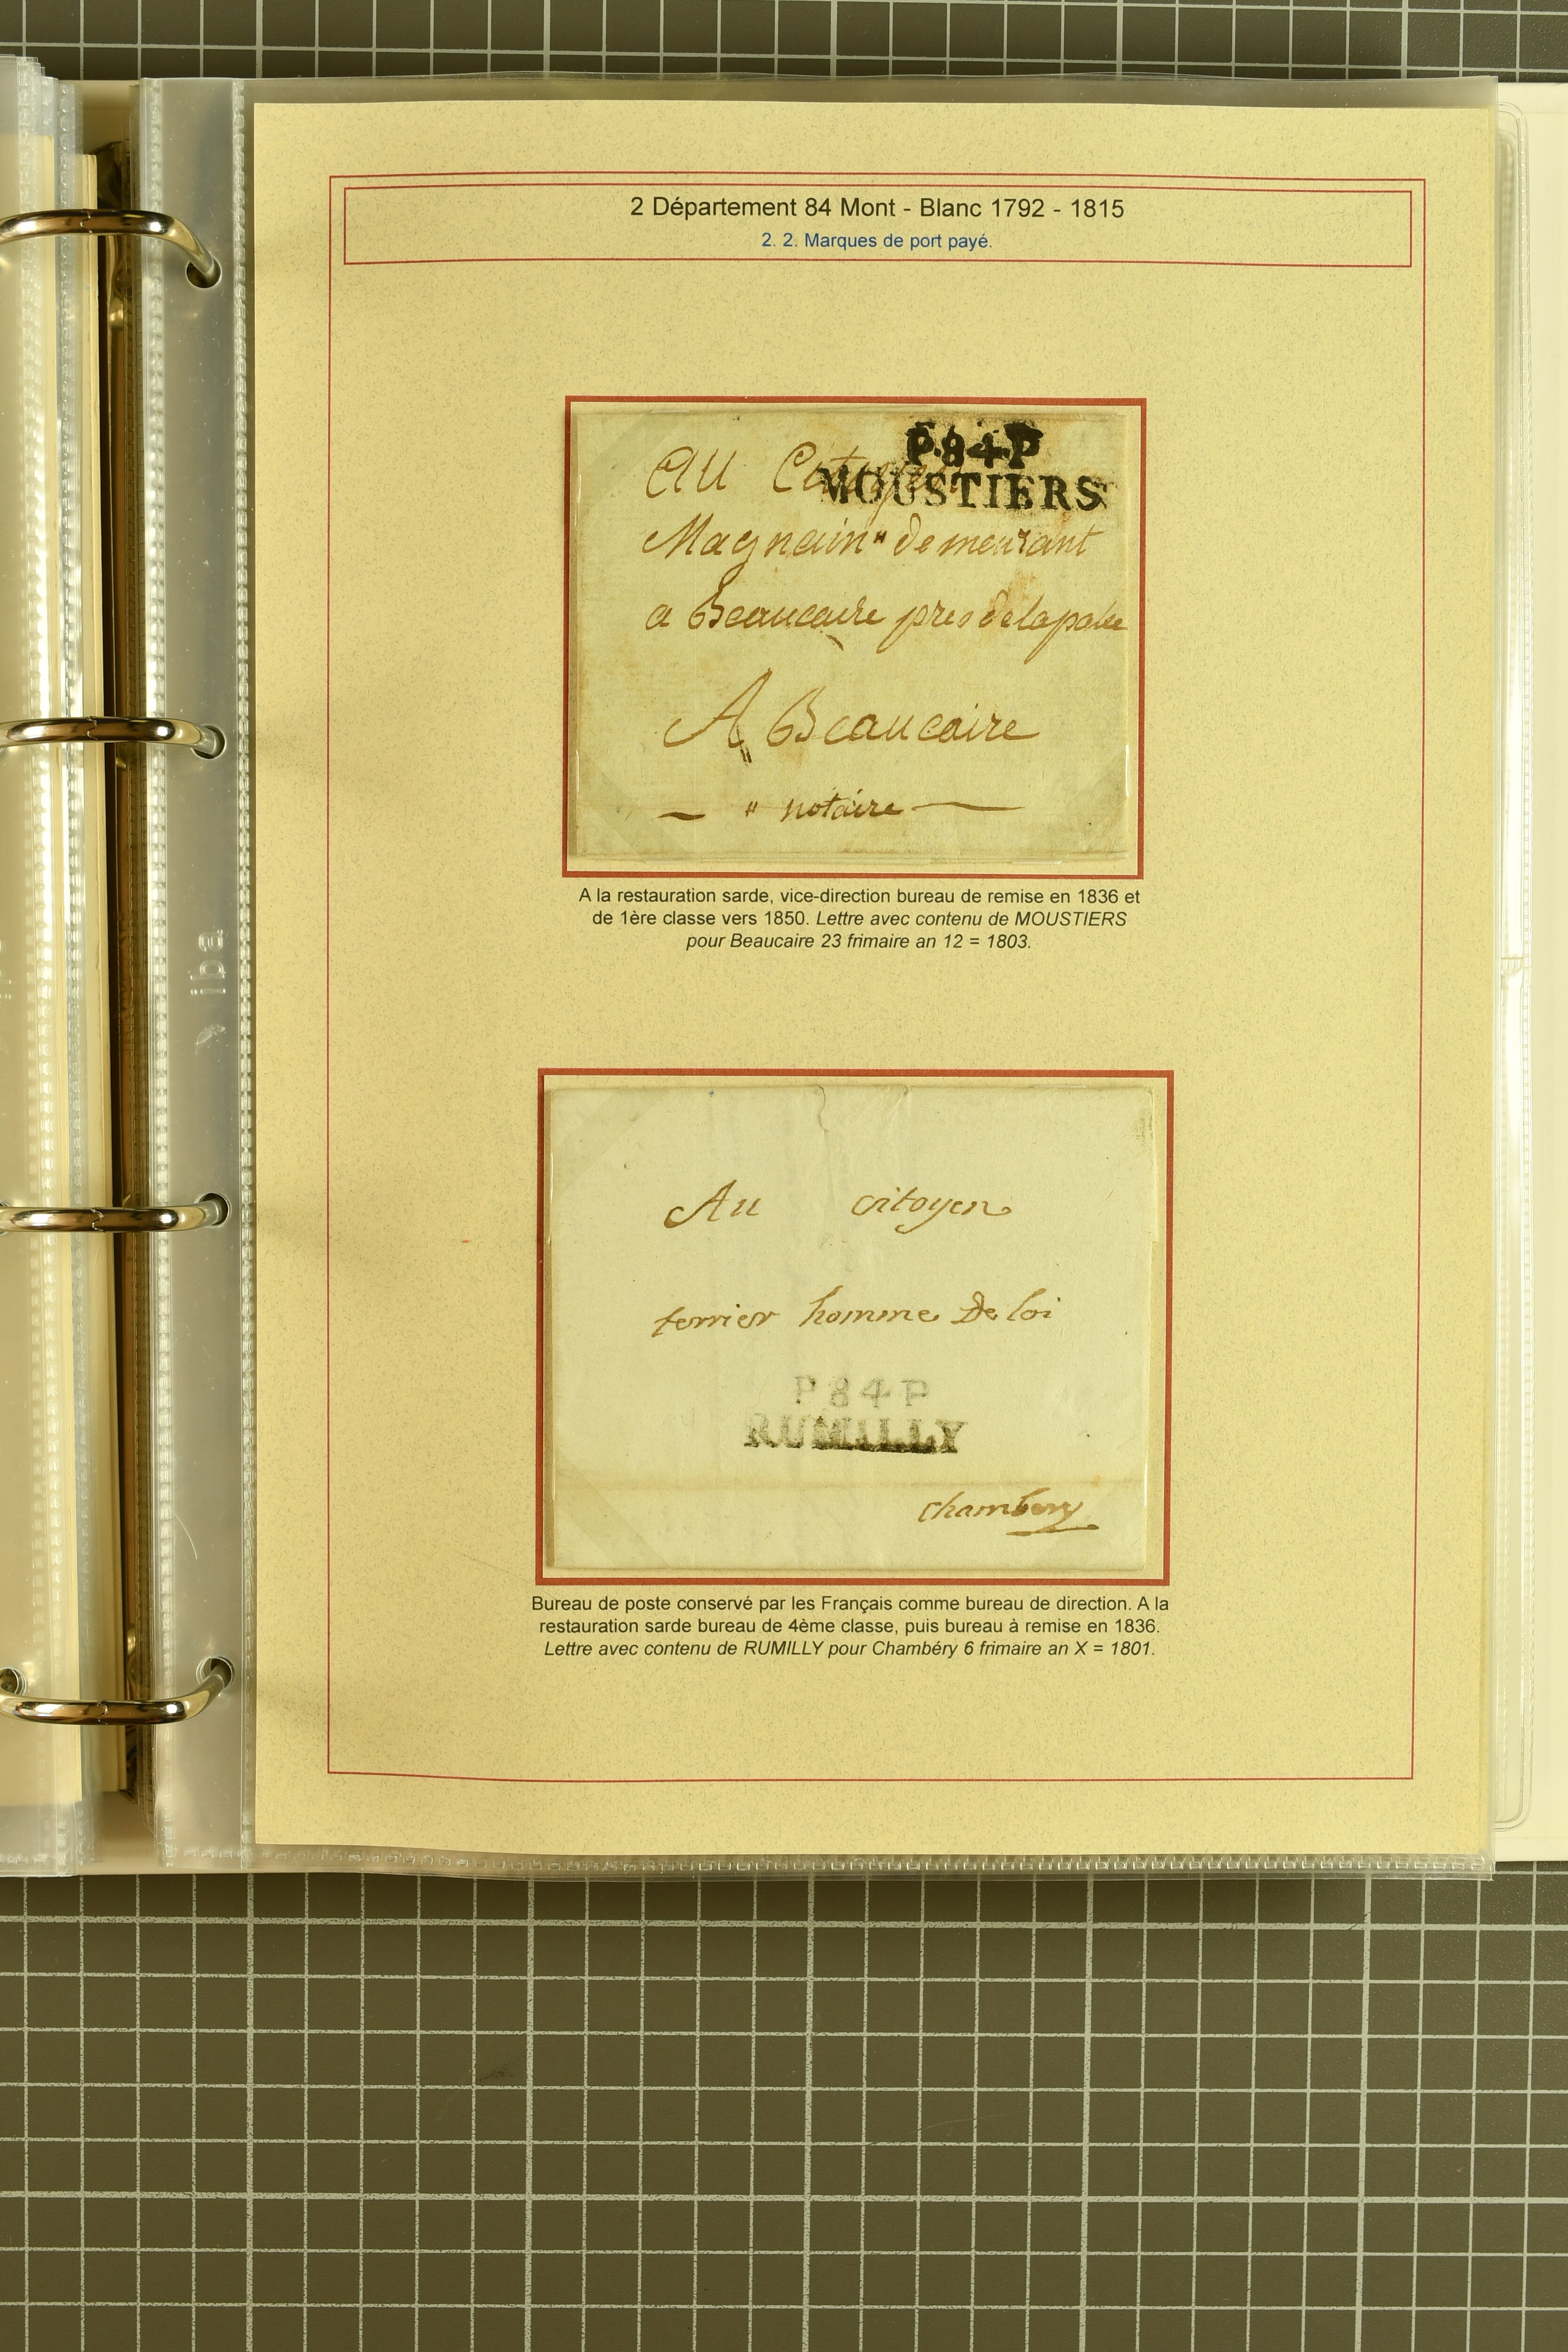 2 Département 84 Mont - Blanc 1792 - 1815
2. 2. Marques de port payé.
P.84.P
MOUSTIERS
Au Citoyen
Magnain" demeurant
a Beaucaire pres de la
A Beaucaire
" notaire
A la restauration sarde, vice-direction bureau de remise en 1836 et
de 1ère classe vers 1850. Lettre avec contenu de MOUSTIERS
pour Beaucaire 23 frimaire an 12 = 1803.
iba
Au citoyen
terrier homme De loi
P84P
RUMILLY
Chambery
Bureau de poste conservé par les Français comme bureau de direction. A la
restauration sarde bureau de 4ème classe, puis bureau à remise en 1836.
Lettre avec contenu de RUMILLY pour Chambéry 6 frimaire an X = 1801.